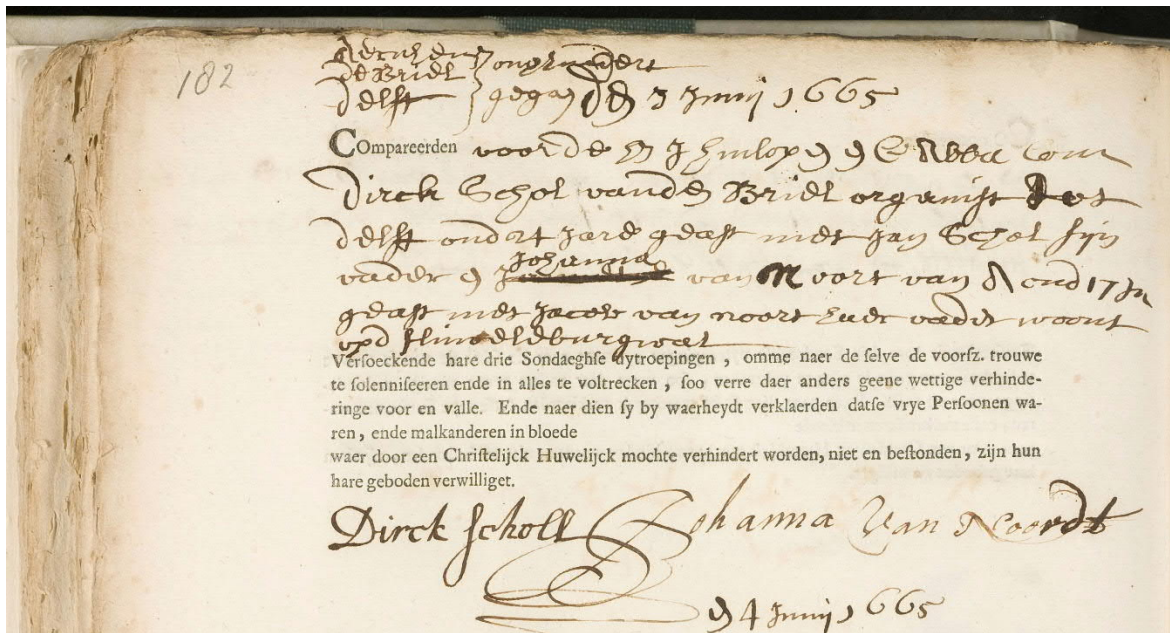 182
de Briel
Delft gegaen den 3 Junij 1665
COmpareerden voor de
Dirck Schol vanden Briel organist tot
delft out jare geast met Jan Schol sijn
vader en Johanna van Noort van A oud 17 Jn
geast met Jacob van noort haer vader woont
opd fluweleburgwal
Verſoeckende hare drie Sondaeghſe uytroepingen , omme naer de ſelve de voorſz. trouwe
te ſolenniſeeren ende in alles te voltrecken , ſoo verre daer anders geene wettige verhinde-
ringe voor en valle. Ende naer dien ſy by waerheydt verklaerden datſe vrye Perſoonen wa-
ren , ende malkanderen in bloede
waer door een Chriſtelijck Huwelijck mochte verhindert worden, niet en beſtonden, zijn hun
hare geboden verwilliget.
Dirck scholl Johanna Van Noordt
4 Junij 1665